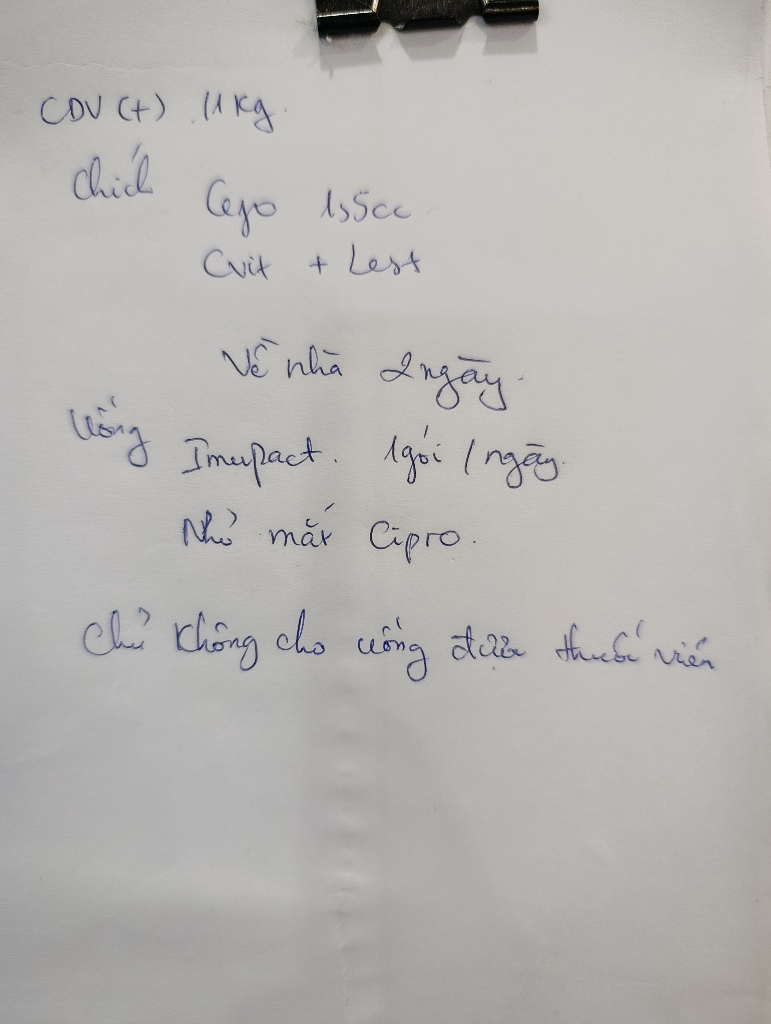 CDV (+) 11 Kg.
Chích Cefo 1,5cc
Cvit + Lest
Về nhà 2 ngày.
Uống Imupact. 1 gói / ngày.
Nhỏ mắt Cipro.
Chủ không cho uống được thuốc viên